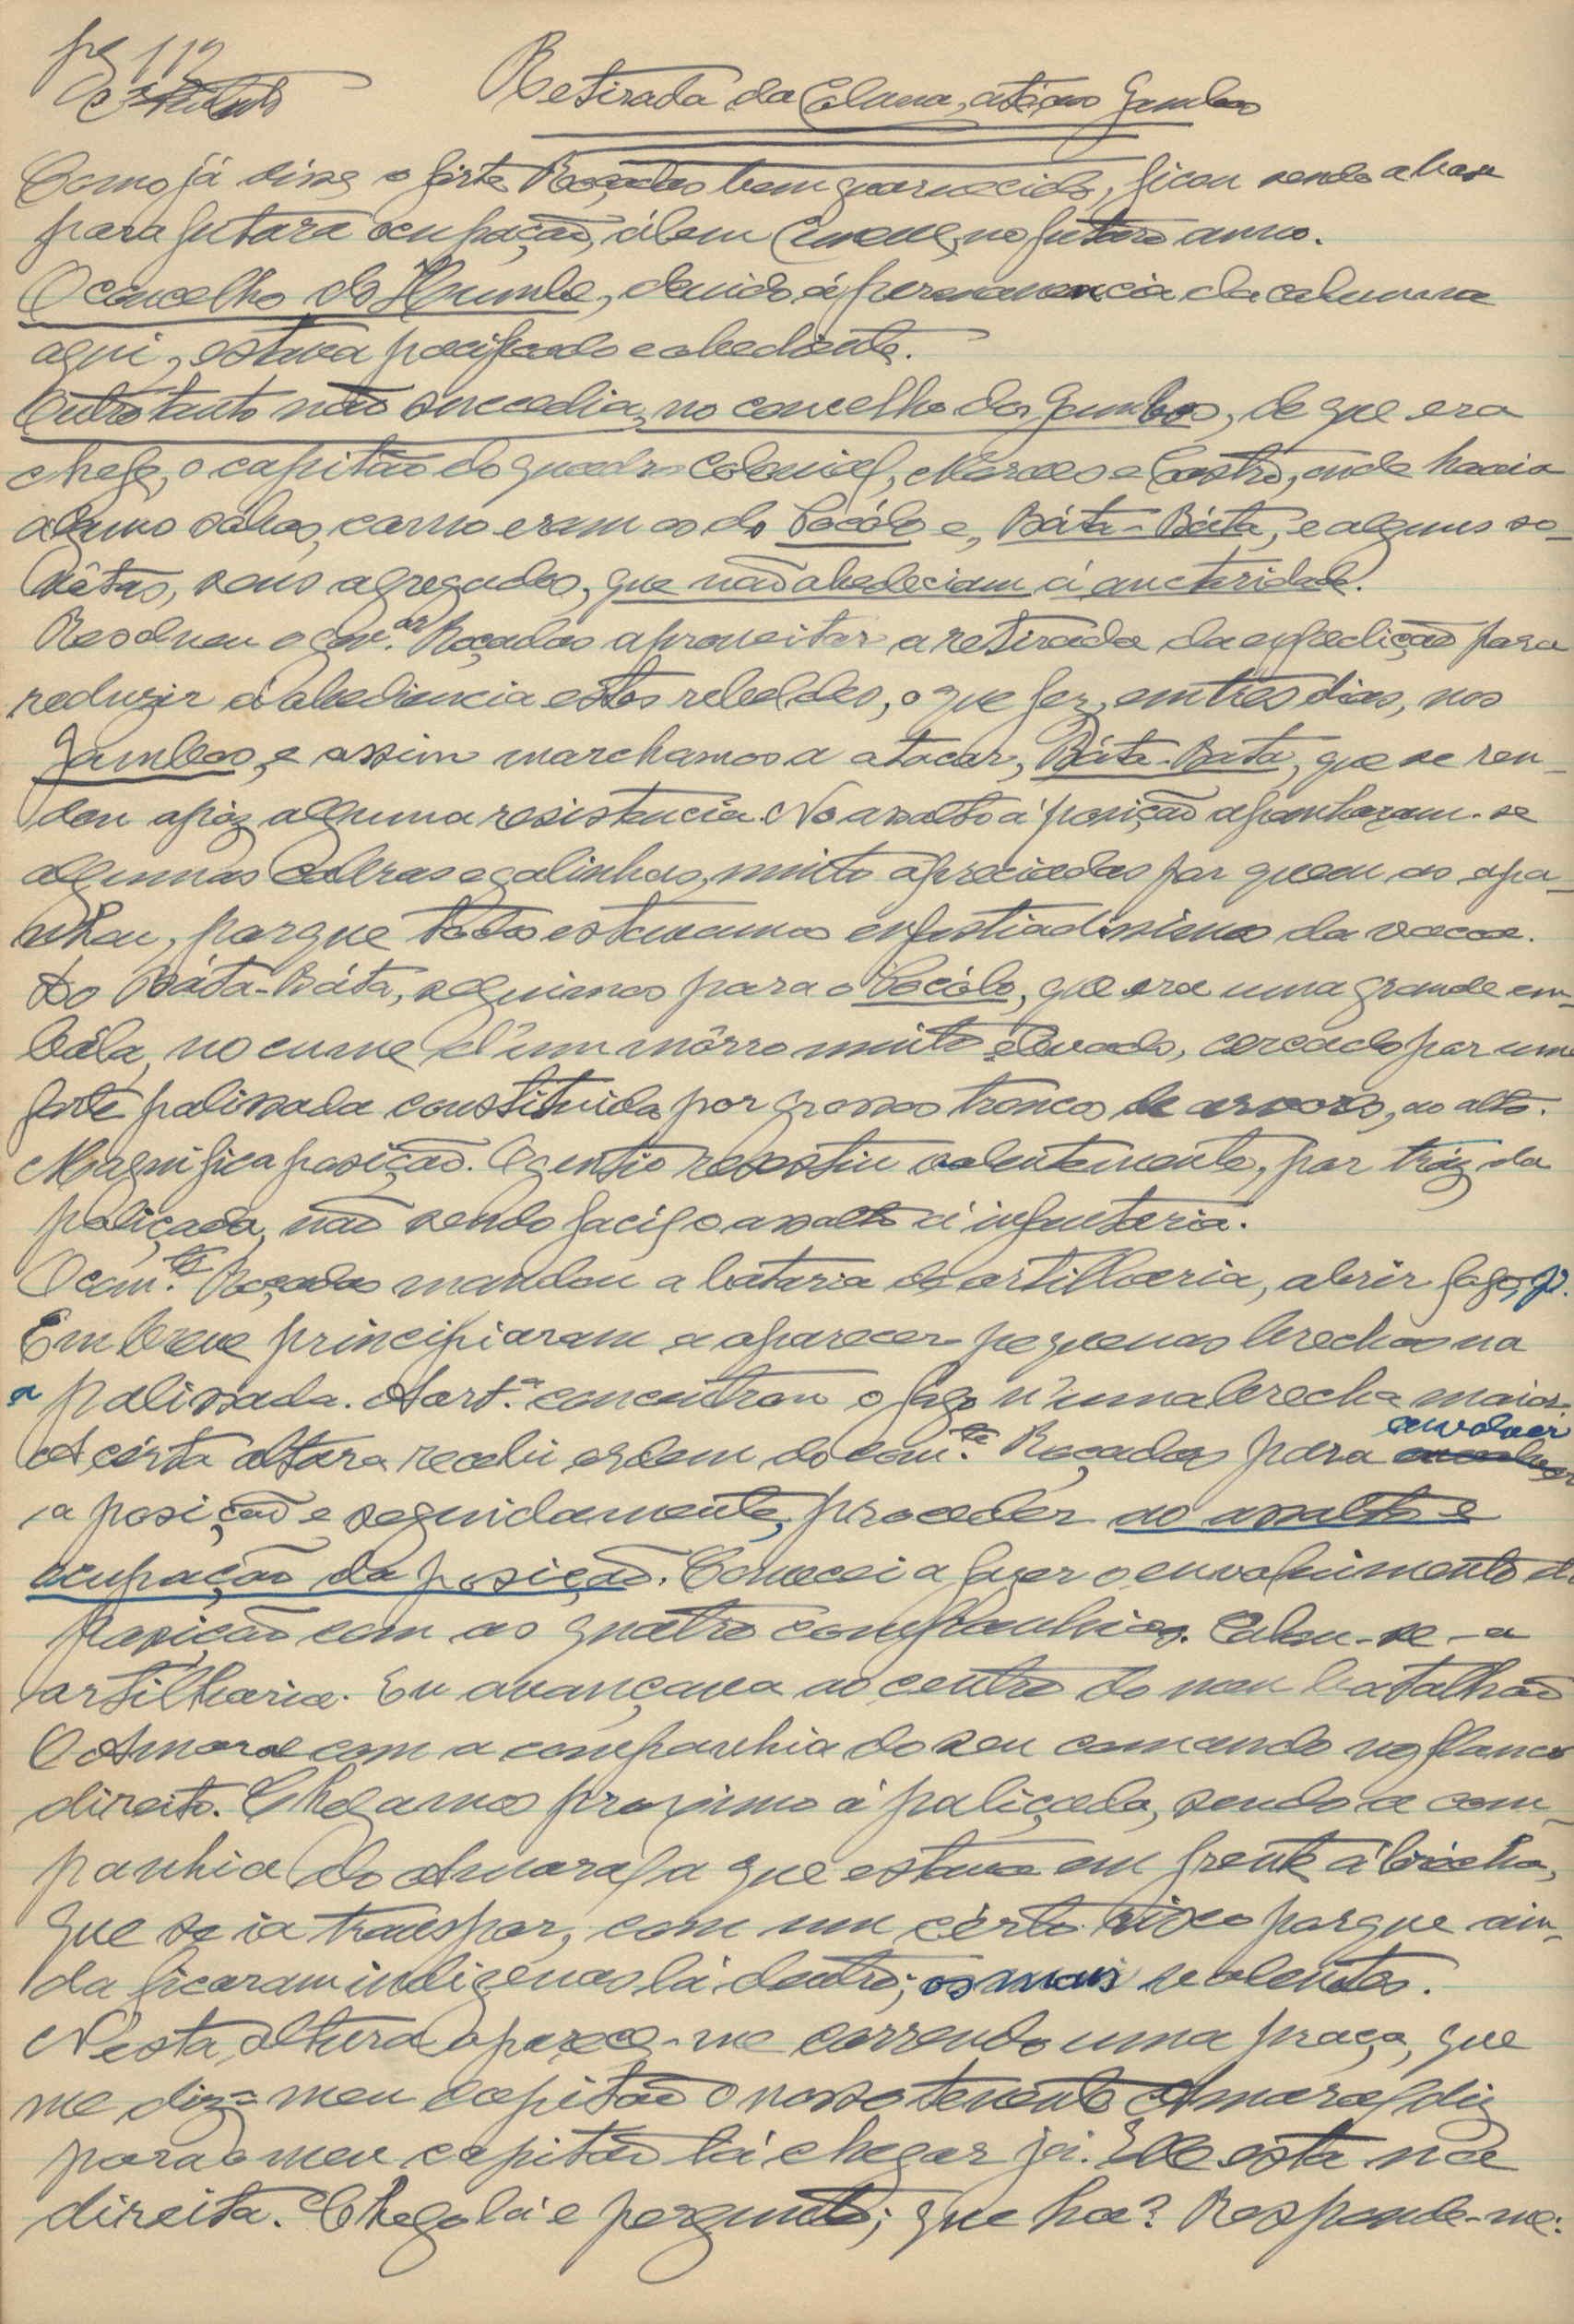 pg 112
Retirada da Coluna, até aos Gambos
Como já disse o forte Roçadas bem guarnecido, ficou sendo a base
para futura ocupação, álem Cunene, no futuro anno.
O concelho do Humbe, devido á permanencia da columna
aqui, estava pacificado e obediente.
Outro tanto não succedia, no concelho dos Gambos, de que era
chefe, o capitão do quadro colonial, Moraes e Castro, onde havia
alguns sóbas, como eram os do Pocólo e, Báta-Báta, e alguns so-
vêtas, seus agregados, que não obedeciam á auctoridade.
Resolveu o Gov.or Roçadas aproveitar a retirada da expedição para
reduzir á obediencia estes rebeldes, o que fez, em tres dias, nos
Gambos, e assim marchamos a atacar, Báta-Bata, que se ren-
deu apóz alguma resistencia. No assalto á posição apanharam-se
algumas cabras e galinhas, muito apreciadas por quem as apa-
nhou, porque todos estavamos enfastiadissimos da vacca.
Do Báta-Báta, seguimos para o Pocólo, que era uma grande em-
bála, no cume d'um môrro muito elevado, cercado por uma
forte palissada constituida por grossos troncos de arvores, ao alto.
Magnifica posição. O gentio resistiu valentemente, por tráz da
paliçada, não sendo facil o assalto á infanteria.
O com.te Roçadas mandou a bataria de artilharia, abrir fogo, p.
Em breve principiaram a aparecer pequenas brechas na
a palissada. A art.a concentrou o fogo n'uma brecha maior.
A cérta altura recebi ordem do com.te Roçadas para envolver
a posição e seguidamente, proceder ao assalto e
ocupação da posição. Comecei a fazer o envolvimento da
posição com as quatro companhias. Calou-se a
artilharia. Eu avançava ao centro do meu batalhão
O Amaral com a companhia do seu comando no flanco
direito. Chegamos proximo á paliçada, sendo a com-
panhia do Amaral a que estava em frente á brécha,
que se ia transpor, com um cérto risco porque ain-
da ficaram indigenas lá dentro; os mais valentes.
N'esta altura aparece-me correndo uma praça, que
me diz = meu capitão o nosso tenente Amaral diz
para o meu capitão lá chegar já. Elle está na
direita. Chego lá e pergunto; que ha? Responde-me: